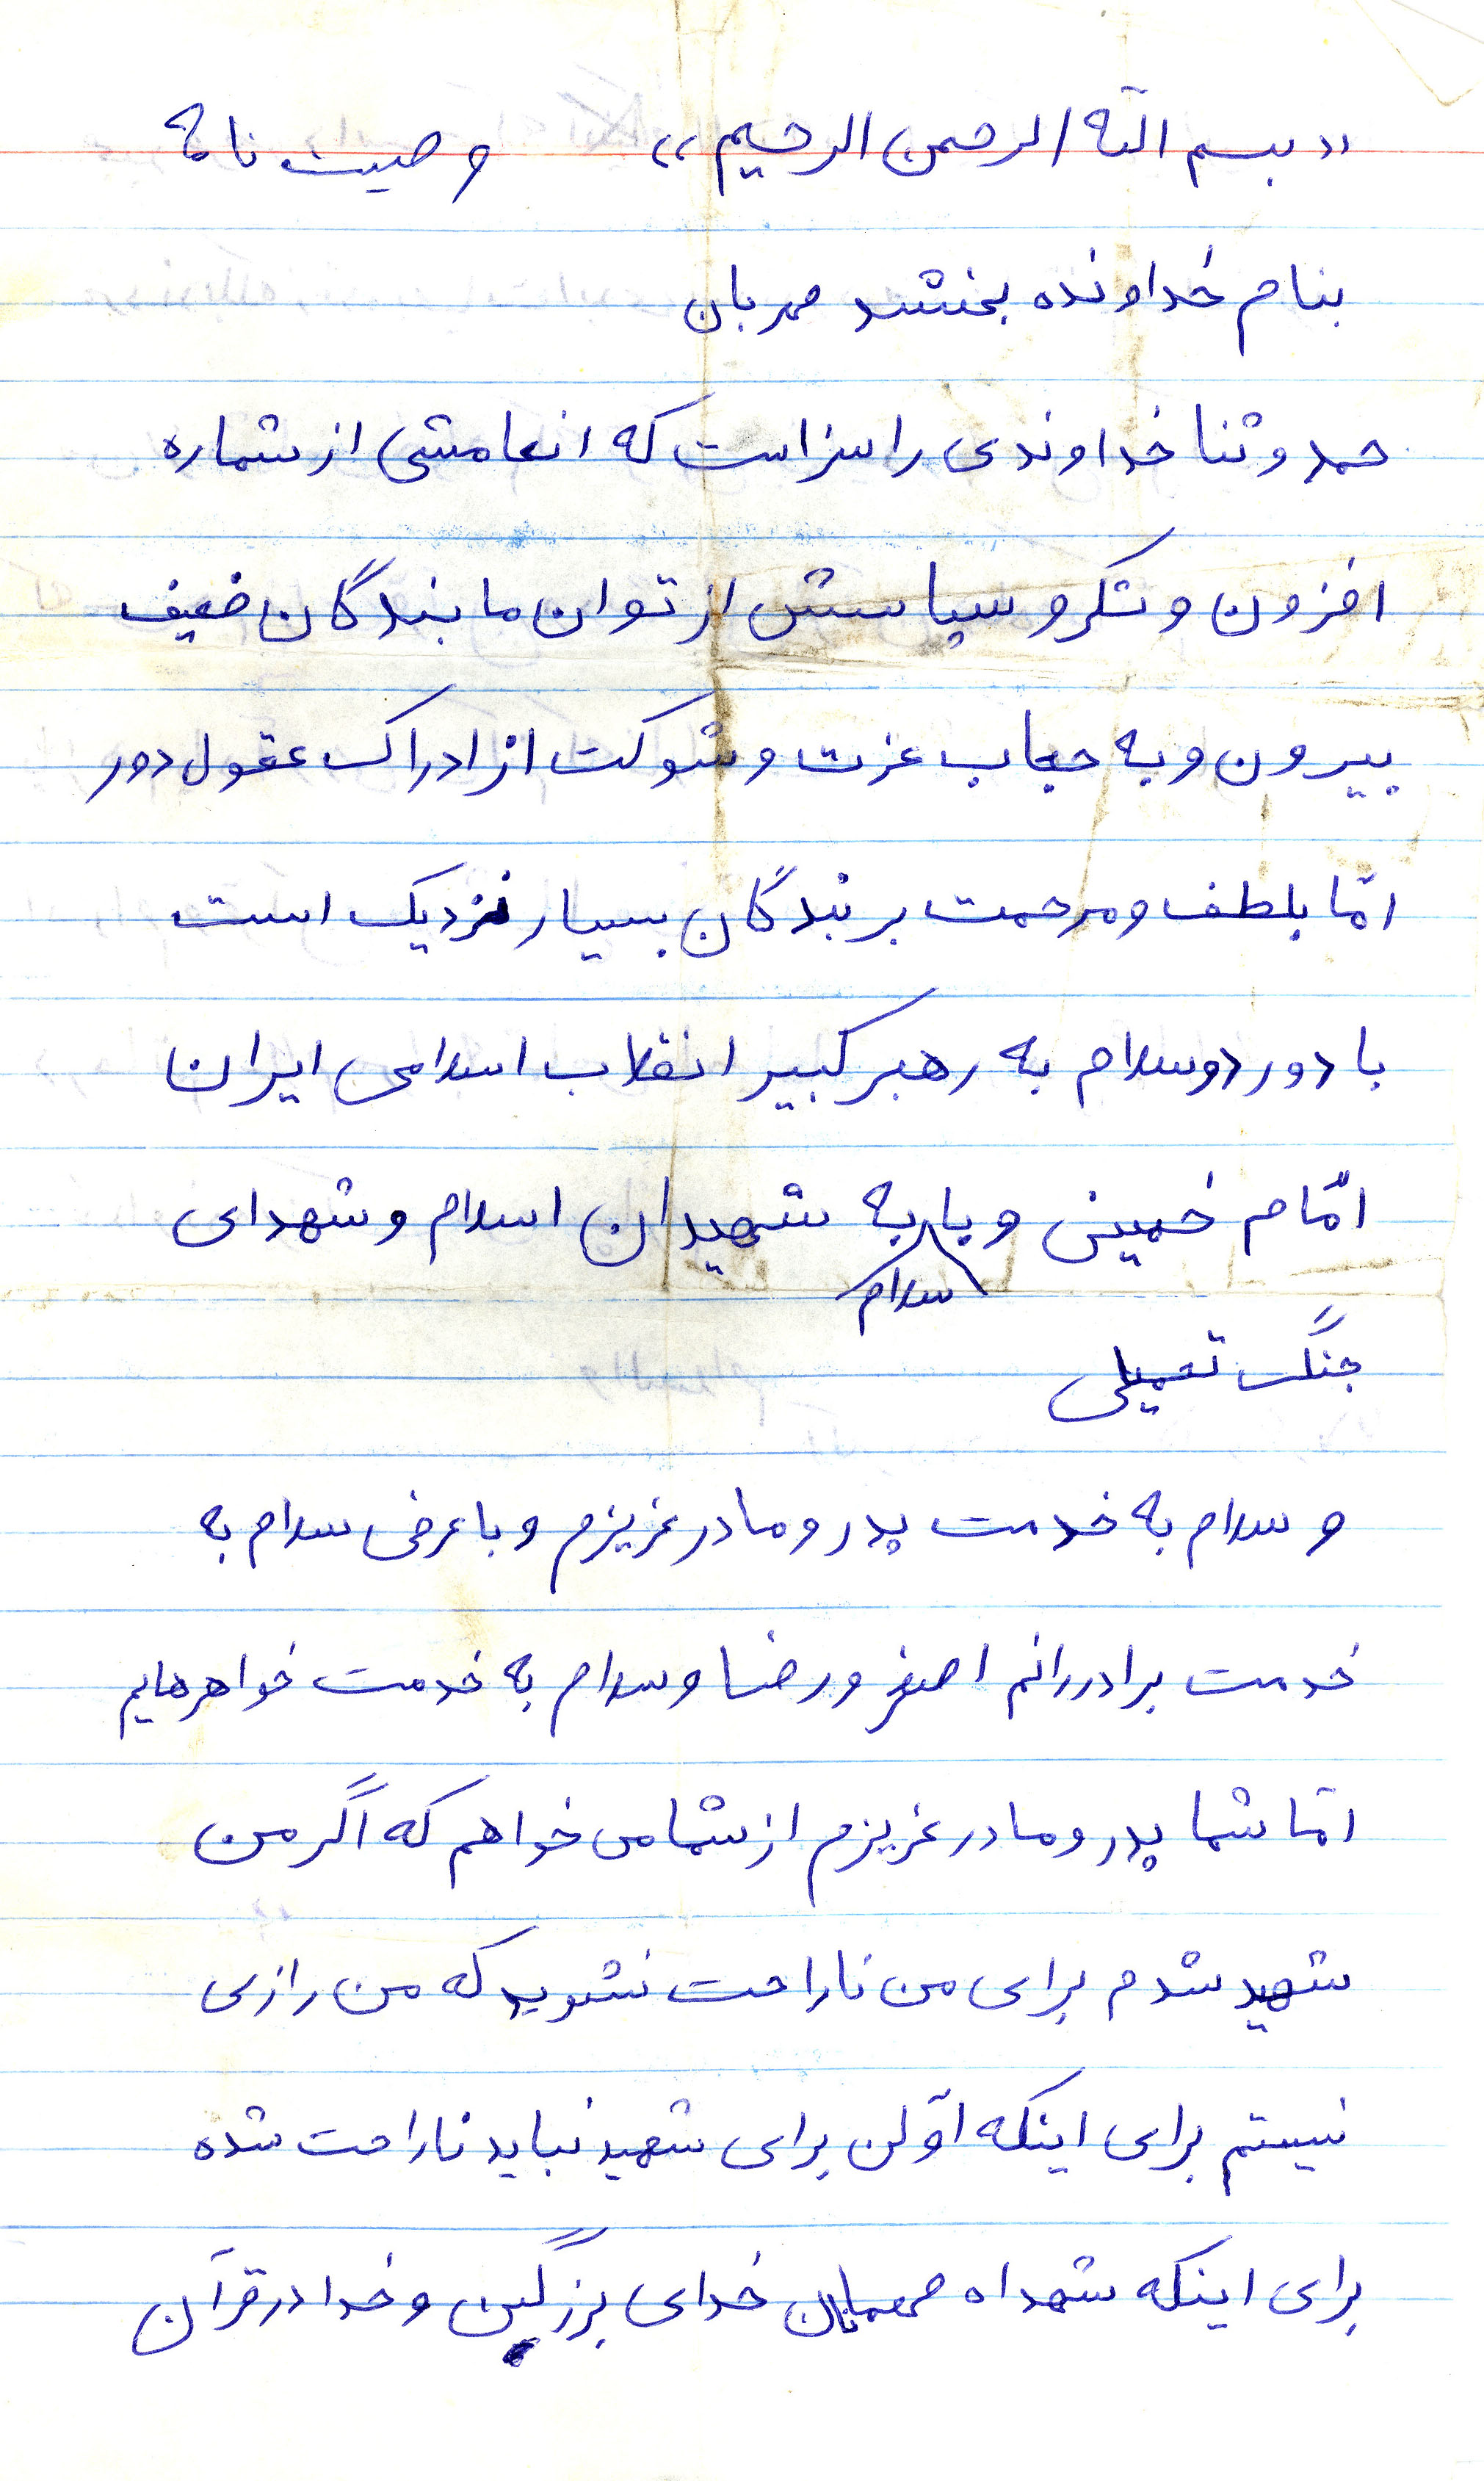 «بسم الله الرحمن الرحیم» وصیت نامه
بنام خداونده بخشند مهربان
حمد و ثنا خداوندی را سزاست که انعامشی از شماره
افزون و شکر و سپاسش از توان ما بندگان ضعیف
بیرون و به حجاب عزت و شوکت از ادراک عقول دور
امّا بلطف و مرحمت بر بندگان بسیار نزدیک است
با دورد و سلام به رهبر کبیر انقلاب اسلامی ایران
امّام خمینی و با سلام به شهیدان اسلام و شهدای
جنگ تحمیلی
و سلام به خدمت پدر و مادر عزیزم و با عرض سلام به
خدمت برادررانم اصغر و رضا و سلام به خدمت خواهرهایم
امّا شما پدر و مادر عزیزم از شما می خواهم که اگر من
شهید شدم برای من ناراحت نشوید که من رازی
نیستم برای اینکه اوّلن برای شهید نباید ناراحت شده
برای اینکه شهداه مهمانان خدای بزرگین و خدا در قرآن